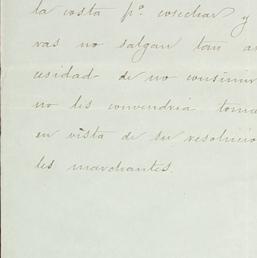 la costa pº. cosechar y
vas no salgan tan a
cesidad de no consumir
no les convendria toma
en vista de su resolucio
les marchantes.